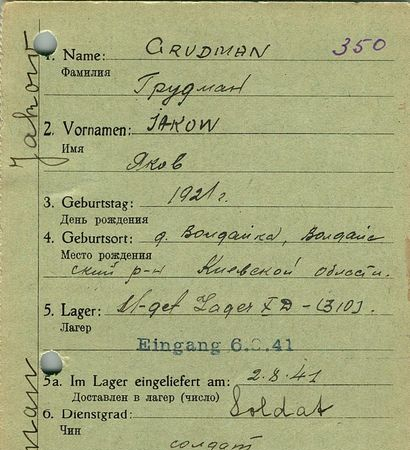 350
1. Name: GRUDMAN
Фамилия
Грудман
Jakow
2. Vornamen: JAKOW
Имя
Яков
3. Geburtstag: 1921 г.
День рождения
4. Geburtsort: д. Володайка, Володайс
Место рождения
ский р-н Киевской области.
5. Lager: Lager XD-(310).
Лагерь
Eingang 6.8.41
5a. Im Lager eingeliefert am: 2.8.41
Доставлен в лагерь (число)
6. Dienstgrad: Soldat
Чин
солдат